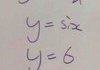 y = six
y = 6